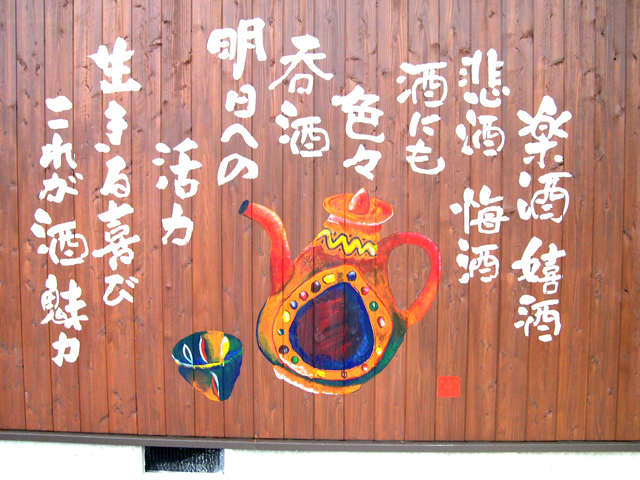 楽酒 嬉酒
悲酒 悔酒
酒にも
色々
呑酒
明日への
活力
生きる喜び
これが酒魅力